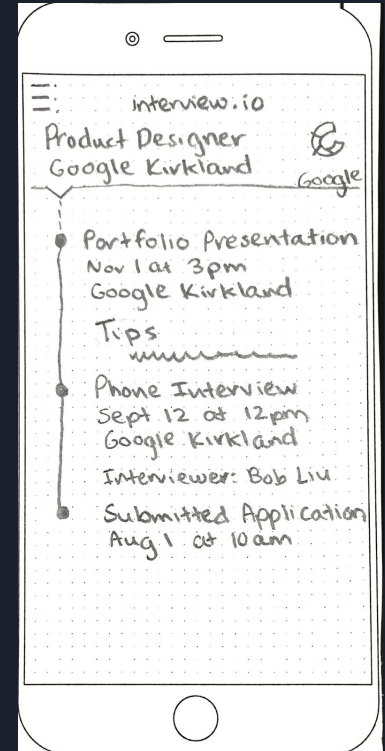 interview.io
Product Designer
Google Kirkland
Google
Portfolio Presentation
Nov 1 at 3pm
Google Kirkland
Tips
Phone Interview
Sept 12 at 12pm
Google Kirkland
Interviewer: Bob Liu
Submitted Application
Aug 1 at 10am